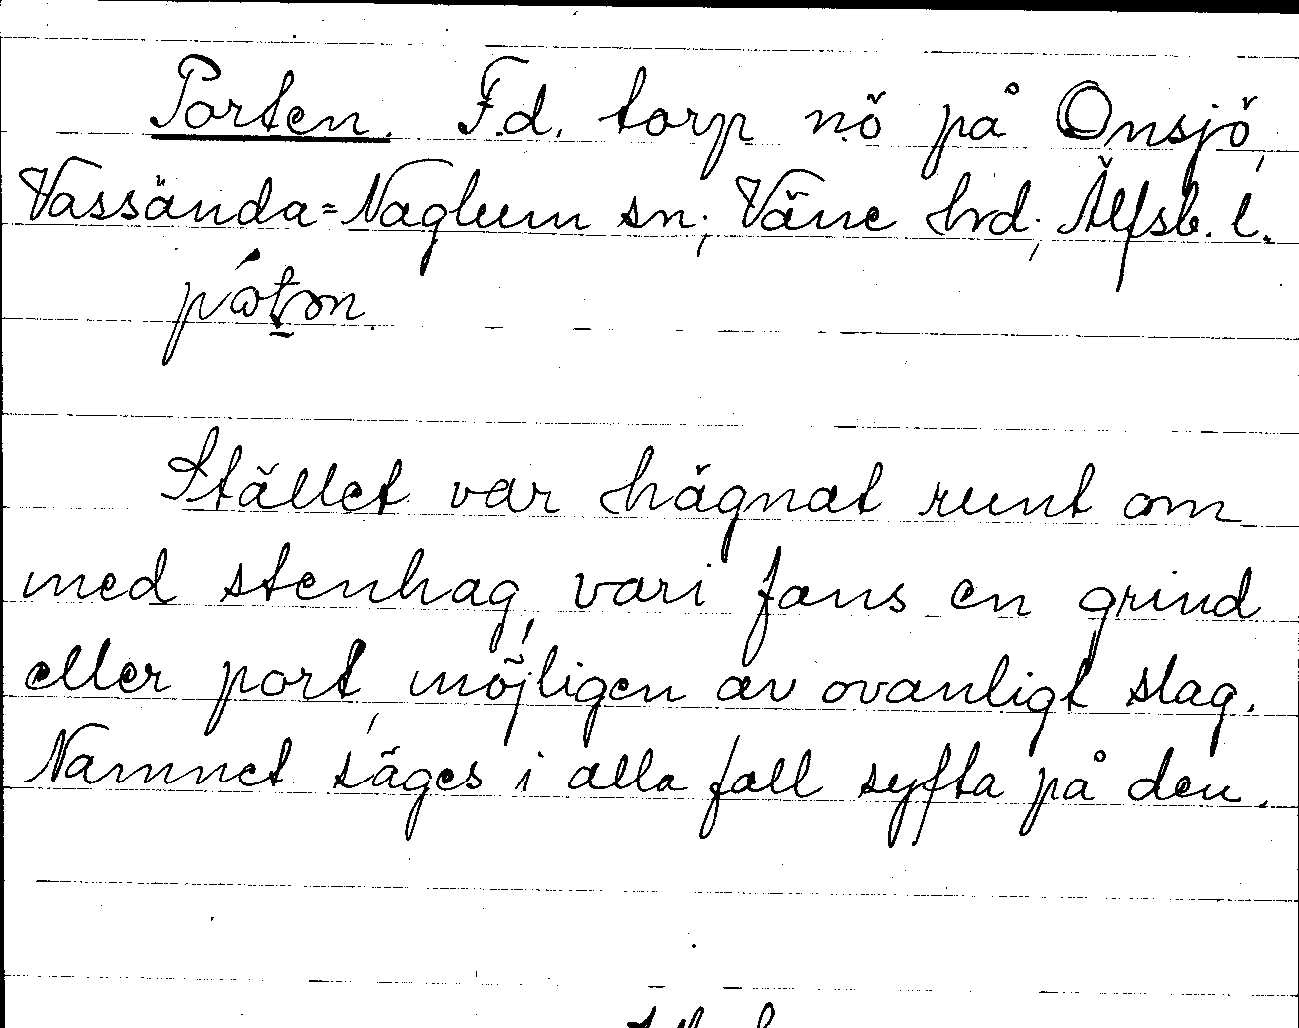 Porten. F.d. torp nö på Onsjö,
Vassända-Naglum sn; Väne hrd; Älfsb. l.
Stället var hägnat runt om
med stenhag, vari fans en grind
eller port, möjligen av ovanligt slag.
Namnet säges i alla fall syfta på den.